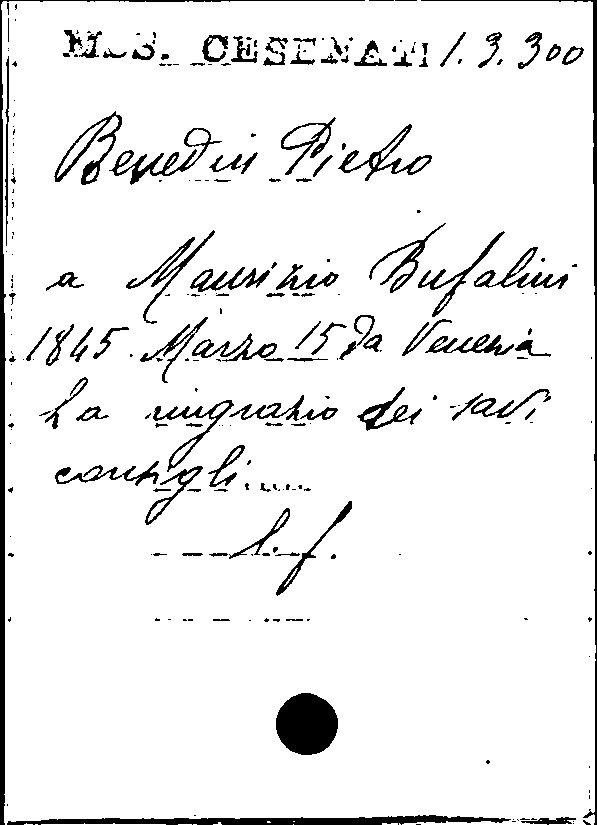 MSS. CESENATI 1.3.300
Benedin Pietro
a Maurizio Bufalini
1845 Marzo 15 da Venezia
La ringrazio dei savi
consigli.....
l. f.